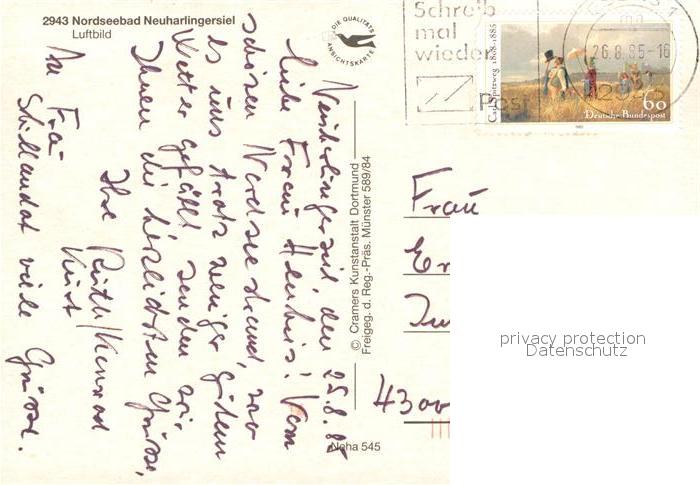 2943 Nordseebad Neuharlingersiel
Luftbild
DIE QUALITÄTS
ANSICHTSKARTE
Schreib
mal
wieder
Post
26.8.85-16
Carl Spitzweg 1808-1885
60
Deutsche Bundespost
Neuharlingersiel den 25.8.85
Liebe Frau Heinhuis! Vom
schönen Nordseestrand, wo
es uns trotz weniger gutem
Wetter gefällt senden wir
Ihnen die herzlichsten Grüße,
Ihre
Kurt
An Frau
viele Grüsse.
© Cramers Kunstanstalt Dortmund
Freigeg. d. Reg.-Präs. Münster 589/84
Neha 545
Frau
Er
4300
privacy protection
Datenschutz